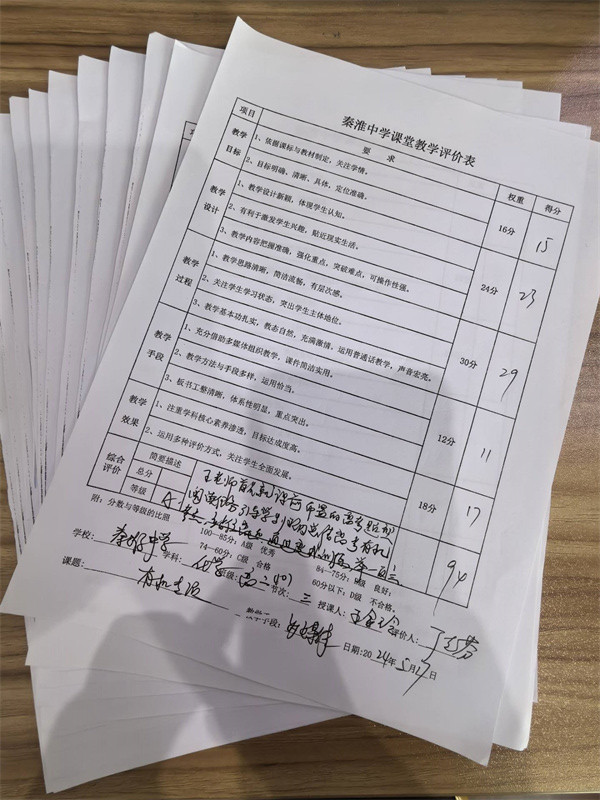 秦淮中学课堂教学评价表
项目 要 求 权重 得分
教学目标 1、依据课标与教材制定，关注学情。 16分 15
2、目标明确、清晰、具体，定位准确。
教学设计 1、教学设计新颖，体现学生认知。 24分 23
2、有利于激发学生兴趣，贴近现实生活。
3、教学内容把握准确，强化重点，突破难点，可操作性强。
教学过程 1、教学思路清晰，简洁流畅，有层次感。 30分 29
2、关注学生学习状态，突出学生主体地位。
3、教学基本功扎实，教态自然，充满激情，运用普通话教学，声音宏亮。
教学手段 1、充分借助多媒体组织教学，课件简洁实用。 12分 11
2、教学方法与手段多样，运用恰当。
3、板书工整清晰，体系性明显，重点突出。
教学效果 1、注重学科核心素养渗透，目标达成度高。 18分 17
2、运用多种评价方式，关注学生全面发展。
综合评价 简要描述 王老师
总分 94
等级 A
附：分数与等级的比照 100—85分：A级 优秀 84—75分：B级 良好；
74—60分：C级 合格 60分以下：D级 不合格。
学校： 秦淮中学 学科： 化学 级： 高二 节次： 三 授课人： 王 评价人： 丁
课题： 有机 教学手段： 多媒体 日期：2024年5月17日